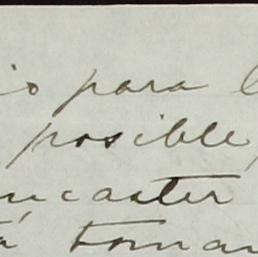 io para l
posible,
ncaster
á tomar